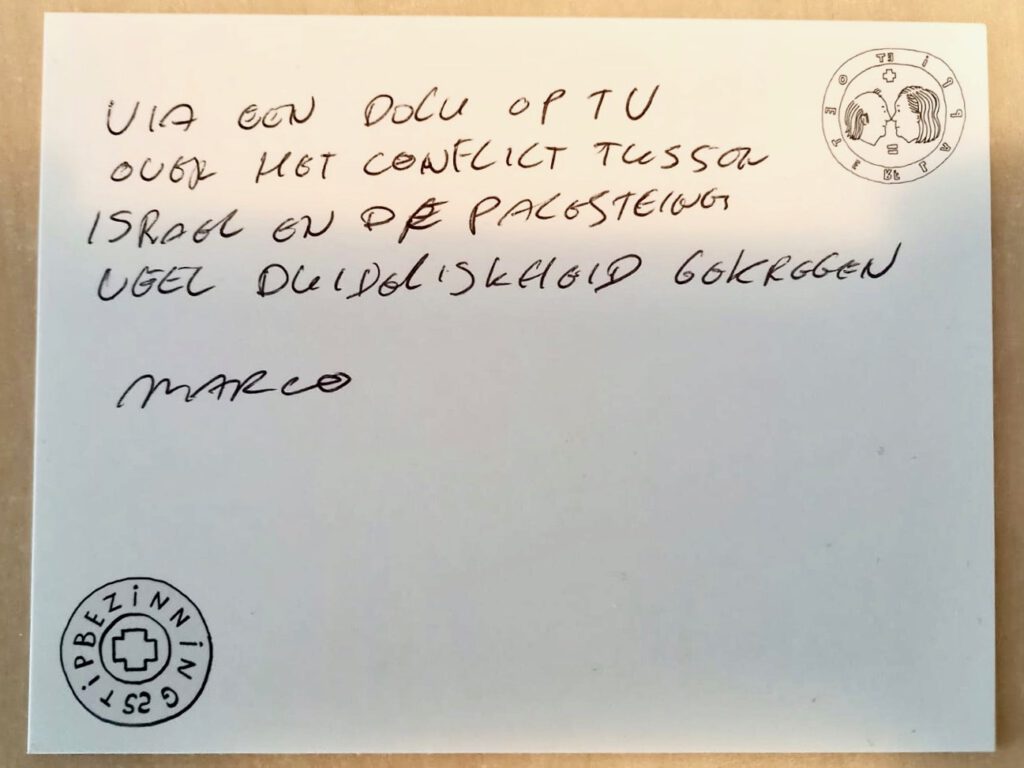 VIA EEN DOCU OP TV
OVER HET CONFLICT TUSSEN
ISRAEL EN DE PALESTEINS
VEEL DUIDELIJKHEID GEKREGEN
MARCO
BEZINNINGSSTIP